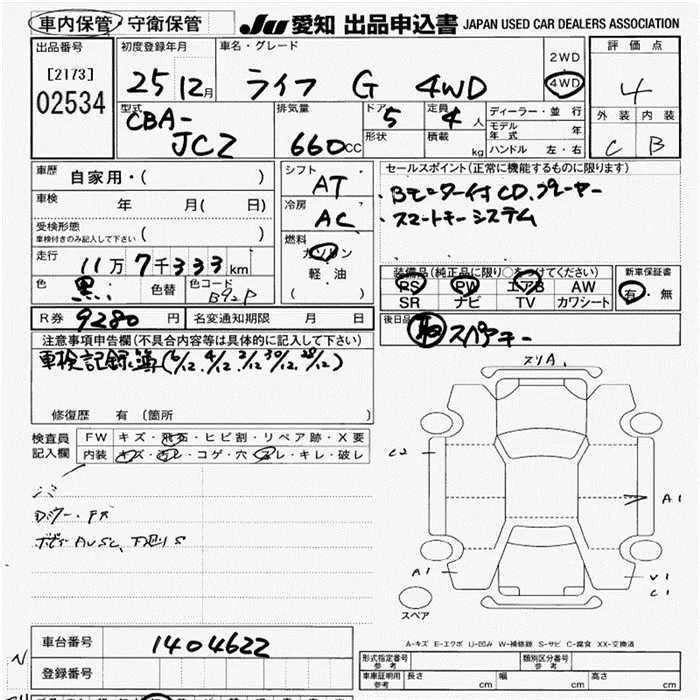 車内保管・守衛保管
JU 愛知 出品申込書 JAPAN USED CAR DEALERS ASSOCIATION
出品番号
[2173]
02534
初度登録年月
25 12月
車名・グレード
ライフ G 4WD
2WD
4WD
評価点
4
外装 内装
C B
型式
CBA-
JC2
排気量
660CC
ドア
5
形状
定員
4人
積載
kg
ディーラー・並行
モデル年式 年
ハンドル 左・右
車歴
自家用・( )
車検 年 月( 日)
受検形態
車検付きのみ記入して下さい ( )
走行
11万7千333km
色
黒
色替
色コード
B92P
R券 9280円
名変通知期限 月 日
シフト
AT
冷房
AC
燃料
ガソリン
軽油
( )
セールスポイント(正常に機能するものに限ります)
・Bモニター付CD、プレーヤー
・スマートキーシステム
装備品(純正品に限り○をつけてください)
PS PW エアB AW
SR ナビ TV カワシート
新車保証書
有・無
後日品
スペアキー
注意事項申告欄(不具合内容等は具体的に記入して下さい)
車検記録簿(6/12、4/12、2/12、30/12、28/12)
修復歴 有(箇所 )
検査員
記入欄
FW キズ・飛石・ヒビ割・リペア跡・X要
内装 キズ・汚レ・コゲ・穴・スレ・キレ・破レ
スリA
C2
A1
A1
V1
C1
スペア
A-キズ E-エクボ U-凹み W-補修跡 S-サビ C-腐食 XX-交換済
車台番号
1404622
登録番号
形式指定番号
参考
類別区分番号
参考
車庫証明用
参考
長さ cm 幅 cm 高さ cm